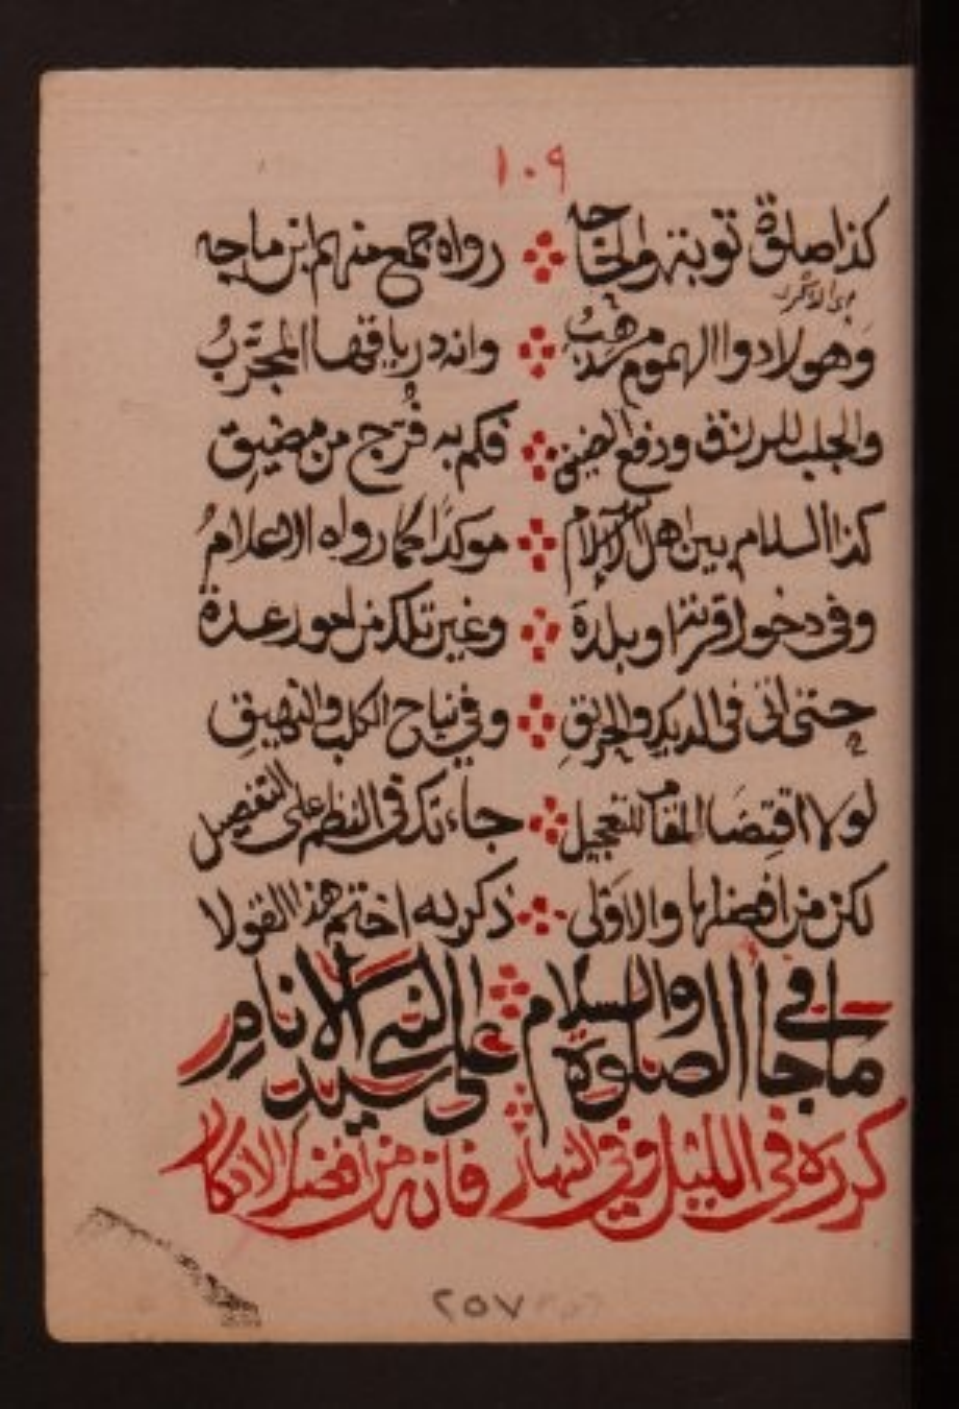 ١٠٩
كذا صلوة توبة والحاجه رواه جمع منهم ابن ماجه
وهو لادوا الهموم مذهب وانه درياقها المجرَّبُ
والجلب للرزق ودفع الضيق فكم به فُرّج من مضيق
كذا السلام بين اهل الاسلام موكدًا كما رواه الاعلامُ
وفي دخول قرية او بلدة وغير تلك من امور عدة
حتى اتى في الديك والحريق وفي نباح الكلب والنهيق
لولا اقتضا المقام للتعجيل جاءتك في النظم على التفصيل
لكن من افضلها والاولى ذكر به اختم هذا القولا
ما جا في الصلوة والسلام على النبي سيد الانام
كرره في الليل وفي النهار فانه من افضل الاذكار
٢٥٧